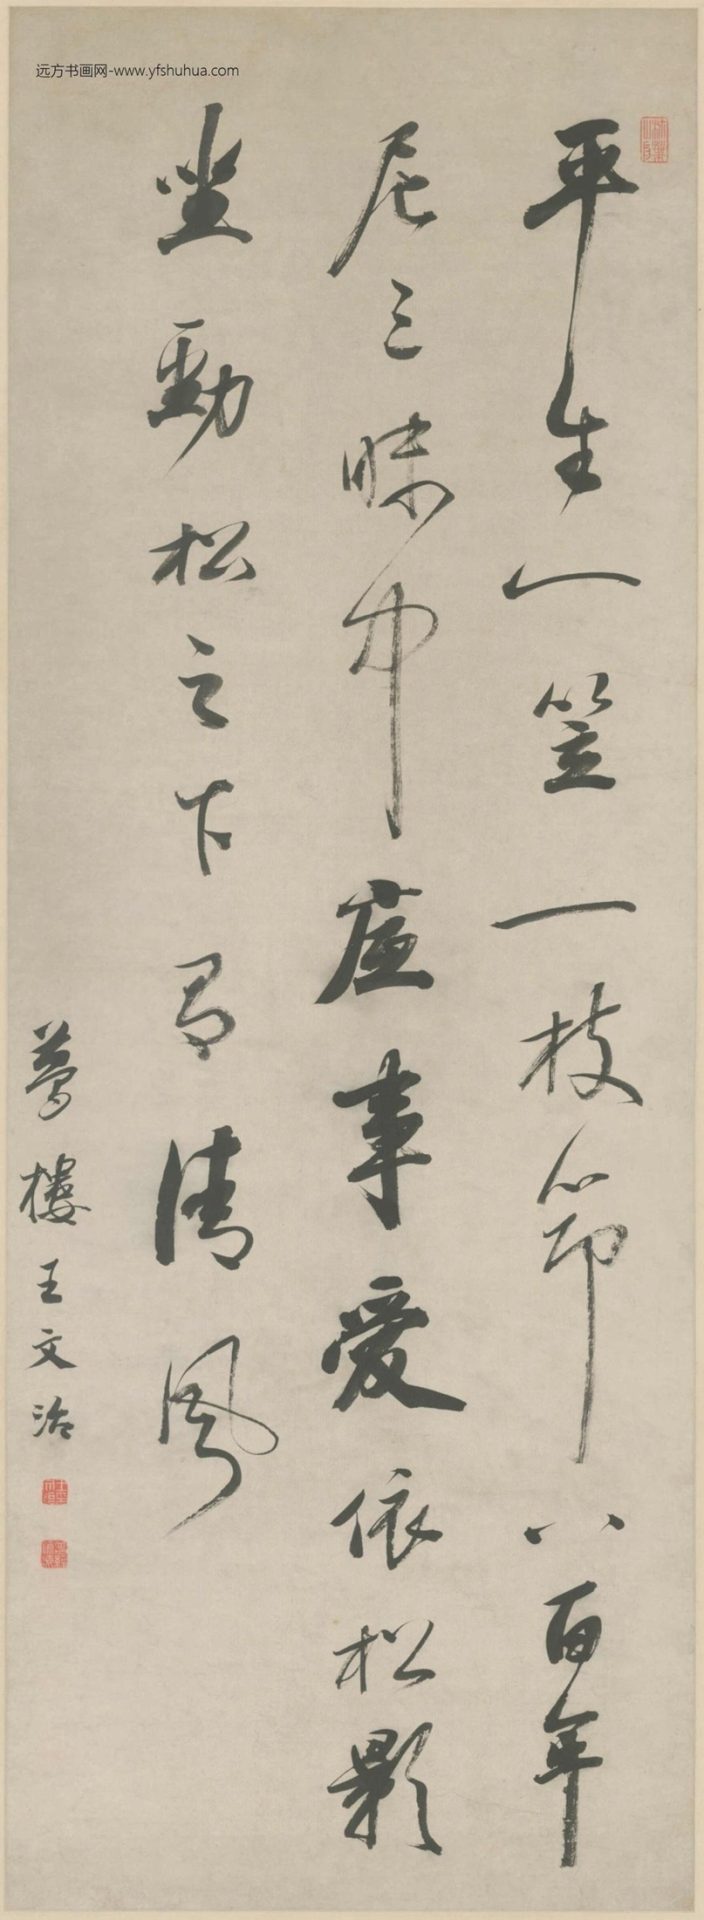 远方书画网-www.yfshuhua.com
平生一笠一枝筇八百牟
尼三昧中底事愛依松影
坐勁松之下有清風
夢樓王文治